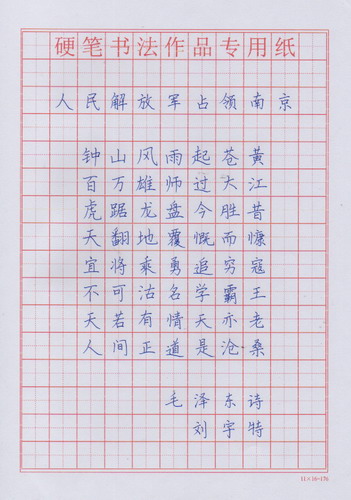 硬笔书法作品专用纸
人民解放军占领南京
钟山风雨起苍黄
百万雄师过大江
虎踞龙盘今胜昔
天翻地覆慨而慷
宜将乘勇追穷寇
不可沽名学霸王
天若有情天亦老
人间正道是沧桑
毛泽东诗
刘宇特
11×16=176